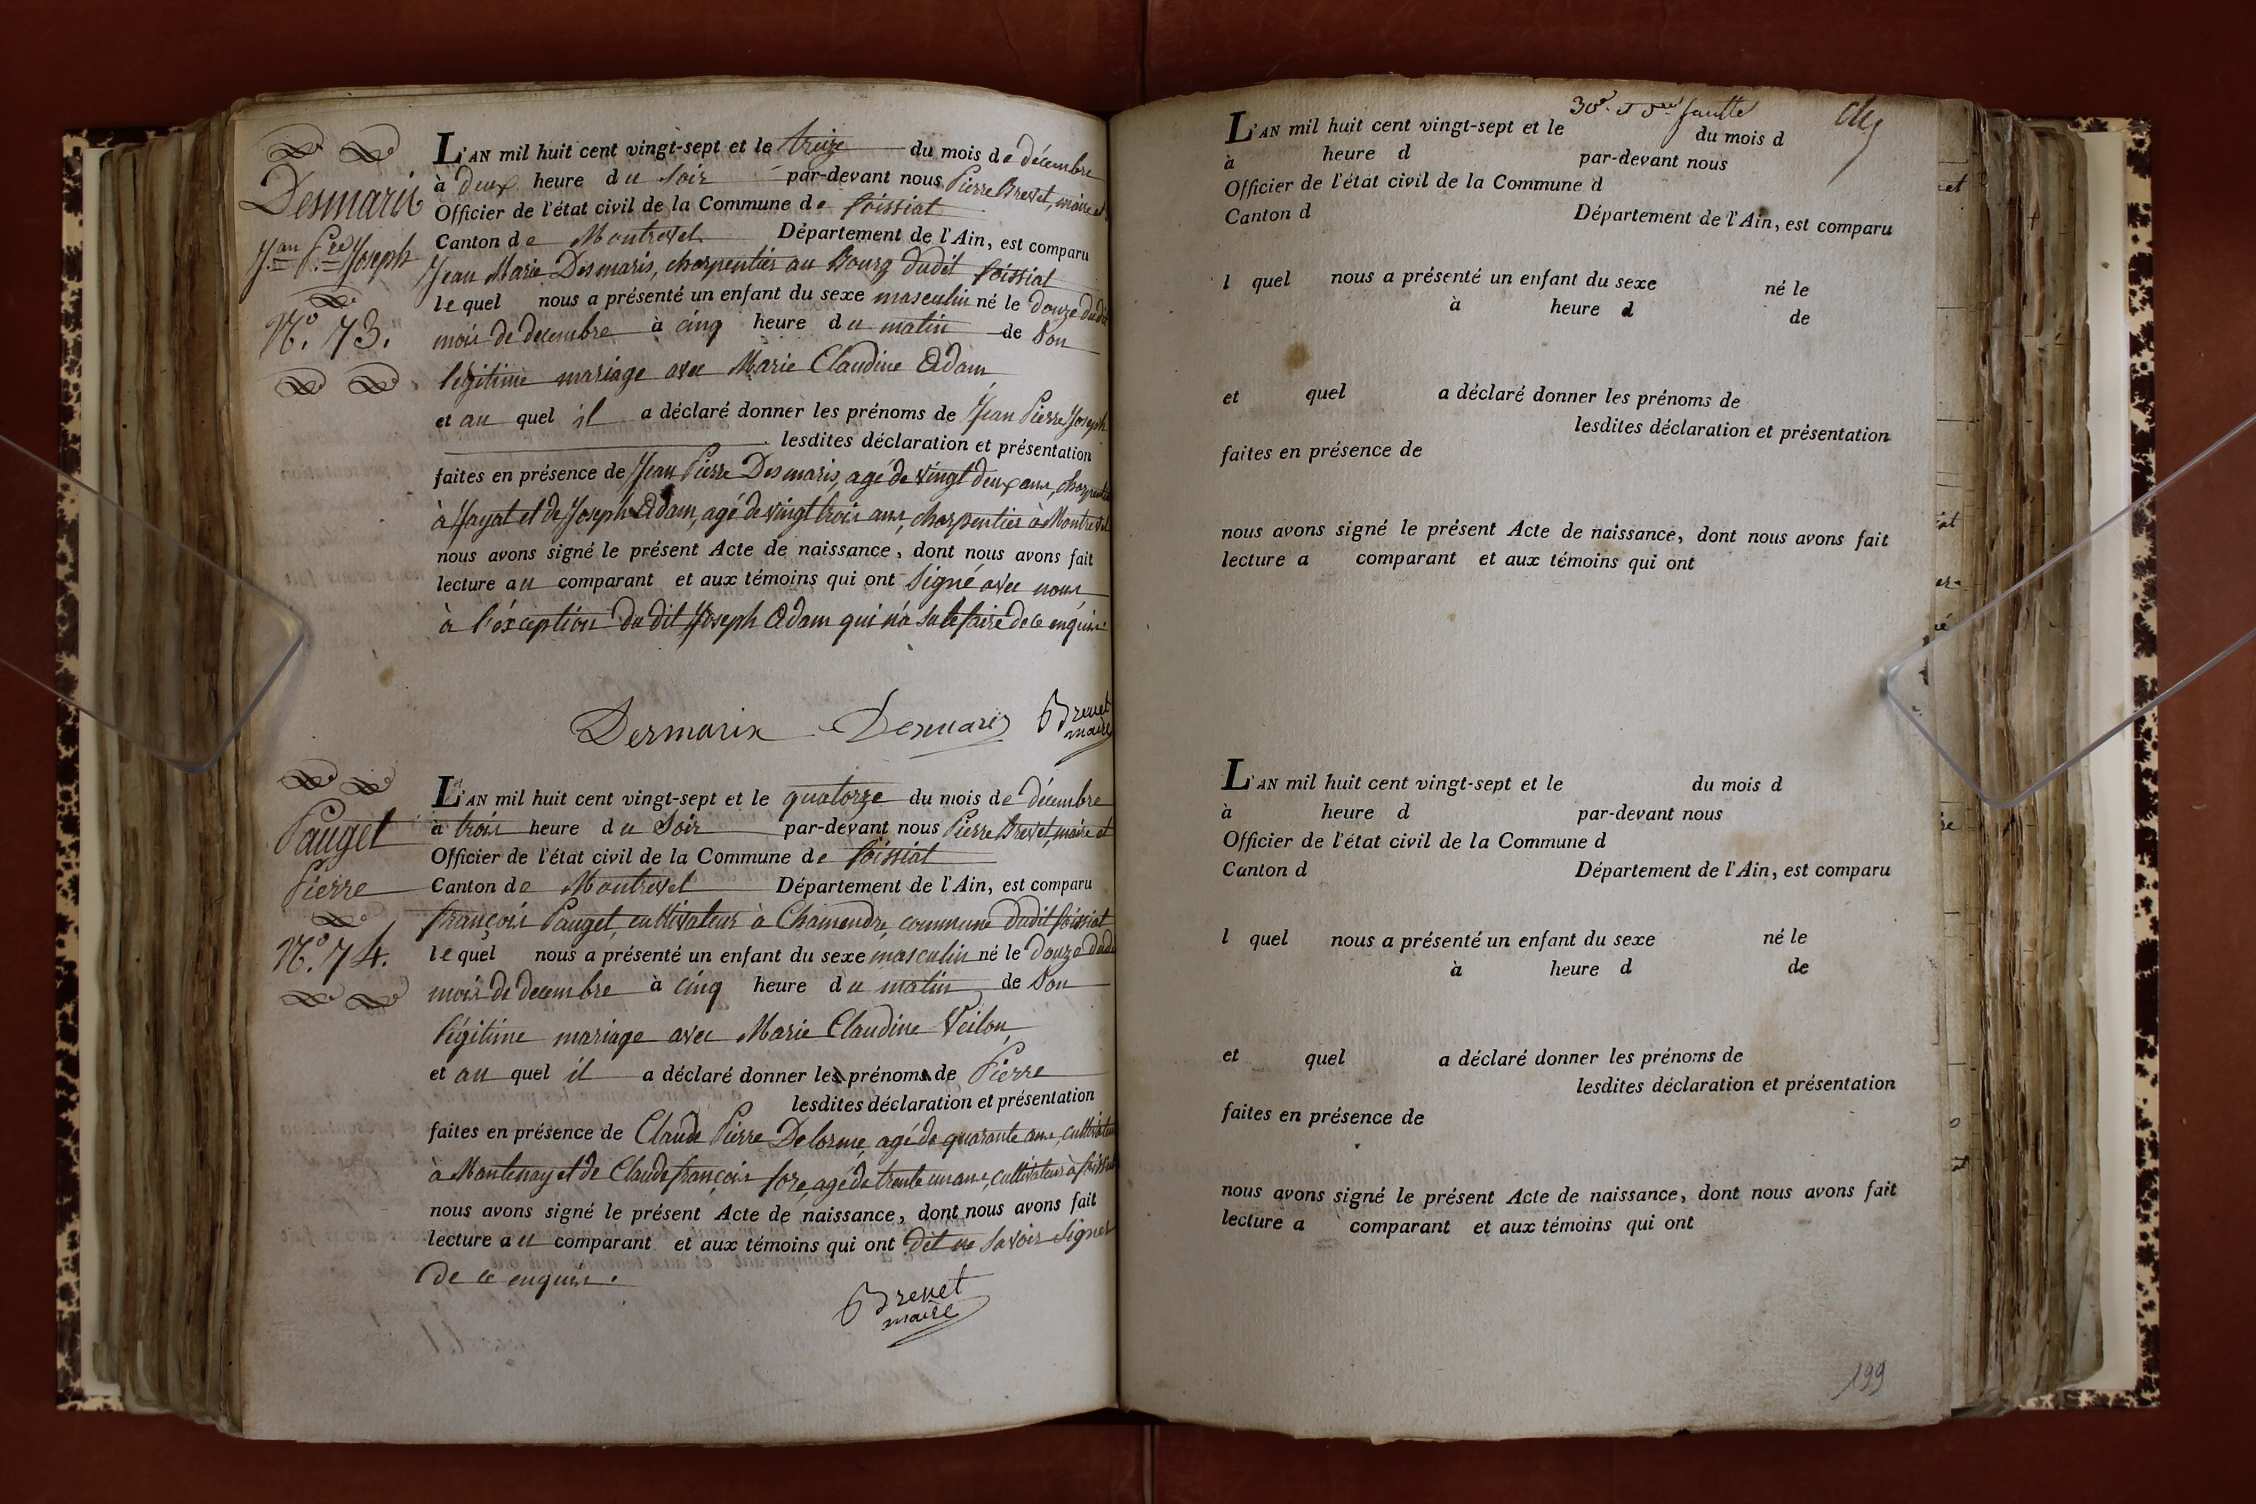 Desmaris
Jean Pre Joseph
N.° 73.
L'AN mil huit cent vingt-sept et le treize du mois de décembre
à deux heure du soir par-devant nous Pierre Brevet, maire et
Officier de l'état civil de la Commune de foissiat
Canton de Montrevel Département de l'Ain, est comparu
Jean Marie Desmaris, charpentier au Bourg dudit foissiat
lequel nous a présenté un enfant du sexe masculin né le douze dudit
mois de decembre à cinq heure du matin de son
légitime mariage avec Marie Claudine Adam
et au quel il a déclaré donner les prénoms de Jean Pierre Joseph
lesdites déclaration et présentation
faites en présence de Jean Pierre Desmaris, agé de vingt deux ans, charpentier
à Jayat et de Joseph Adam, agé de vingt trois ans, charpentier à Montrevel
nous avons signé le présent Acte de naissance, dont nous avons fait
lecture au comparant et aux témoins qui ont signé avec nous
à l'éxception du dit Joseph Adam qui n'a su le faire de ce enquis
Desmarix Desmaris Brevet
maire
Pauget
Pierre
N.° 74.
L'AN mil huit cent vingt-sept et le quatorze du mois de décembre
à trois heure du soir par-devant nous Pierre Brevet, maire et
Officier de l'état civil de la Commune de foissiat
Canton de Montrevel Département de l'Ain, est comparu
françois Pauget, cultivateur à Chamendre, commune dudit foissiat
lequel nous a présenté un enfant du sexe masculin né le douze dudit
mois de decembre à cinq heure du matin de son
légitime mariage avec Marie Claudine Veilon
et au quel il a déclaré donner les prénoms de Pierre
lesdites déclaration et présentation
faites en présence de Claude Pierre Delorme, agé de quarante ans, cultivateur
à Montenay et de Claude françois fore, agé de trente un ans, cultivateur à foissiat
nous avons signé le présent Acte de naissance, dont nous avons fait
lecture au comparant et aux témoins qui ont dit ne savoir signer
de ce enquis.
Brevet
maire
30e et Dre feuille
L'AN mil huit cent vingt-sept et le du mois d
à heure d par-devant nous
Officier de l'état civil de la Commune d
Canton d Département de l'Ain, est comparu
l quel nous a présenté un enfant du sexe né le
à heure d de
et quel a déclaré donner les prénoms de
lesdites déclaration et présentation
faites en présence de
nous avons signé le présent Acte de naissance, dont nous avons fait
lecture a comparant et aux témoins qui ont
L'AN mil huit cent vingt-sept et le du mois d
à heure d par-devant nous
Officier de l'état civil de la Commune d
Canton d Département de l'Ain, est comparu
l quel nous a présenté un enfant du sexe né le
à heure d de
et quel a déclaré donner les prénoms de
lesdites déclaration et présentation
faites en présence de
nous avons signé le présent Acte de naissance, dont nous avons fait
lecture a comparant et aux témoins qui ont
199